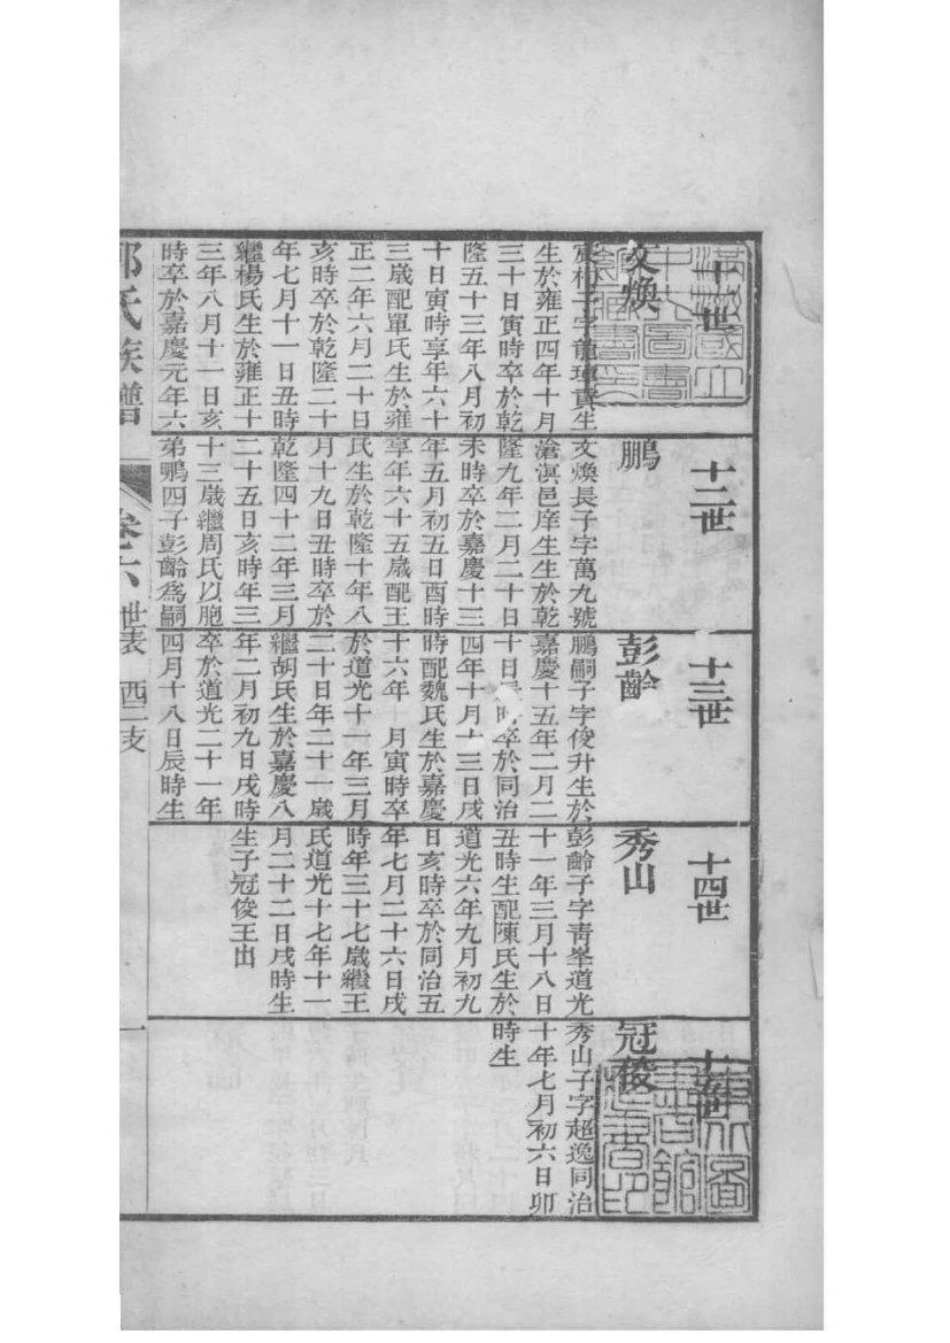 十一世
文煥
宸樞子字龍章貢生
生於雍正四年十月
三十日寅時卒於乾
隆五十三年八月初
十日寅時享年六十
三歲配單氏生於雍
正二年六月二十日
亥時卒於乾隆二十
年七月十一日丑時
繼楊氏生於雍正十
三年八月十一日亥
時卒於嘉慶元年六
十二世
鵬
文煥長子字萬九號
滄溟邑庠生生於乾
隆九年二月二十日
未時卒於嘉慶十三
年五月初五日酉時
享年六十五歲配王
氏生於乾隆十年八
月十九日丑時卒於
乾隆四十二年三月
二十五日亥時年三
十三歲繼周氏以胞
弟鶚四子彭齡爲嗣
十三世
彭齡
鵬嗣子字俊升生於
嘉慶十五年二月二
十日時卒於同治
四年十月十三日戌
時配魏氏生於嘉慶
十六年十月寅時卒
於道光十一年三月
二十日年二十一歲
繼胡氏生於嘉慶八
年二月初九日戌時
卒於道光二十一年
四月十八日辰時生
十四世
秀山
彭齡子字靑峯道光
十一年三月十八日
丑時生配陳氏生於
道光六年九月初九
日亥時卒於同治五
年七月二十六日戌
時年三十七歲繼王
氏道光十七年十一
月二十二日戌時生
生子冠俊王出
十五世
冠俊
秀山子字超逸同治
十年七月初六日卯
時生
氏族譜
卷六 世表 西二支
一